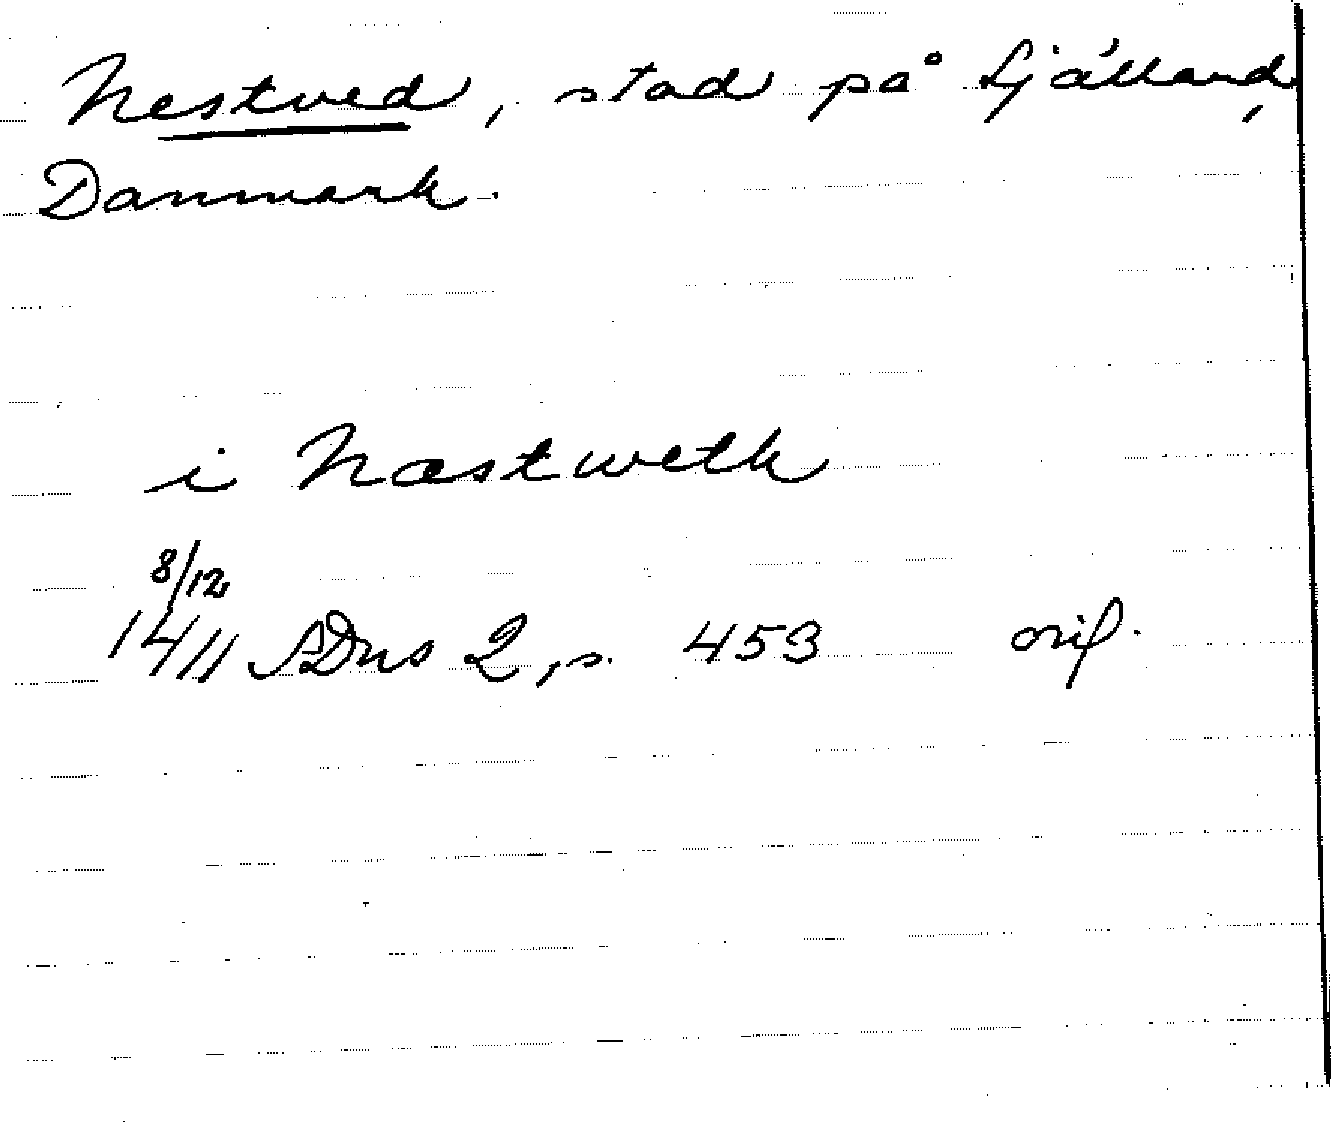 Nestved, stad på Själland,
Danmark.
i Næstweth
8/12
1411 SDns 2, s. 453 orig.